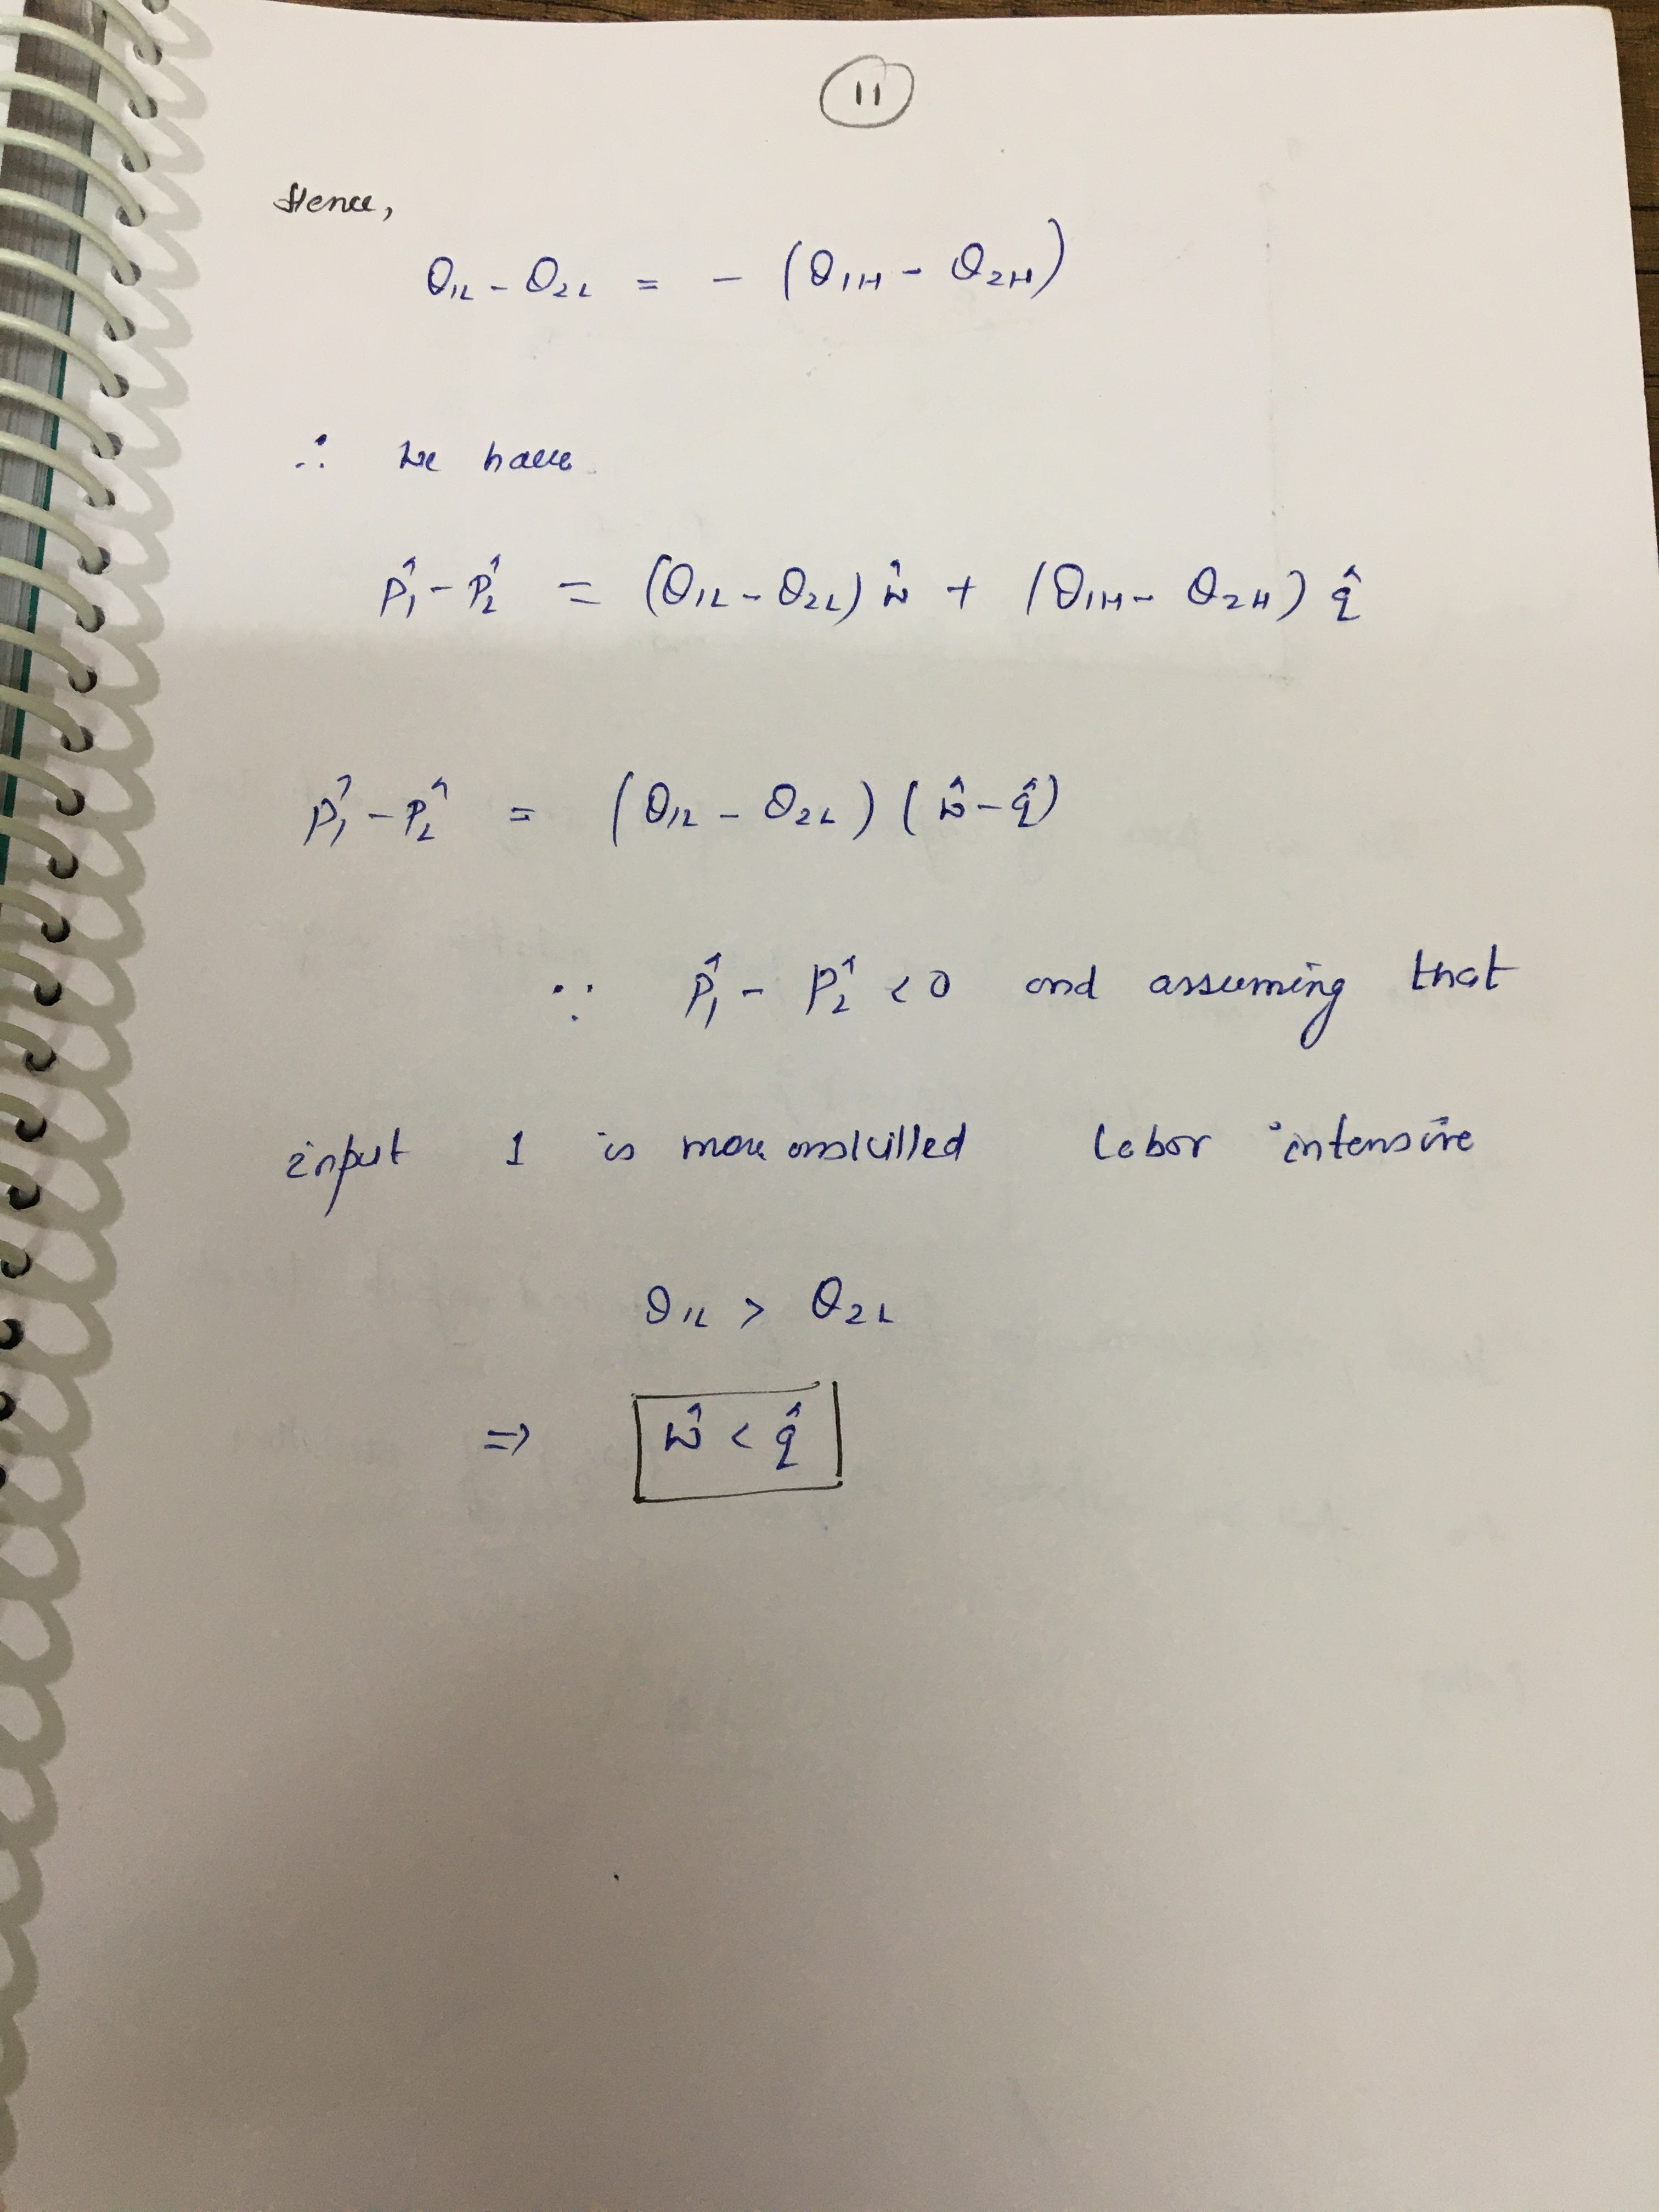 11
Hence,
θ₁L - θ₂L = - (θ₁H - θ₂H)
∴ we have
p̂₁ - p̂₂ = (θ₁L - θ₂L) ŵ + (θ₁H - θ₂H) q̂
p̂₁ - p̂₂ = (θ₁L - θ₂L) (ŵ - q̂)
∵ p̂₁ - p̂₂ < 0 and assuming that
input 1 is more unskilled labor intensive
θ₁L > θ₂L
⇒ ŵ < q̂